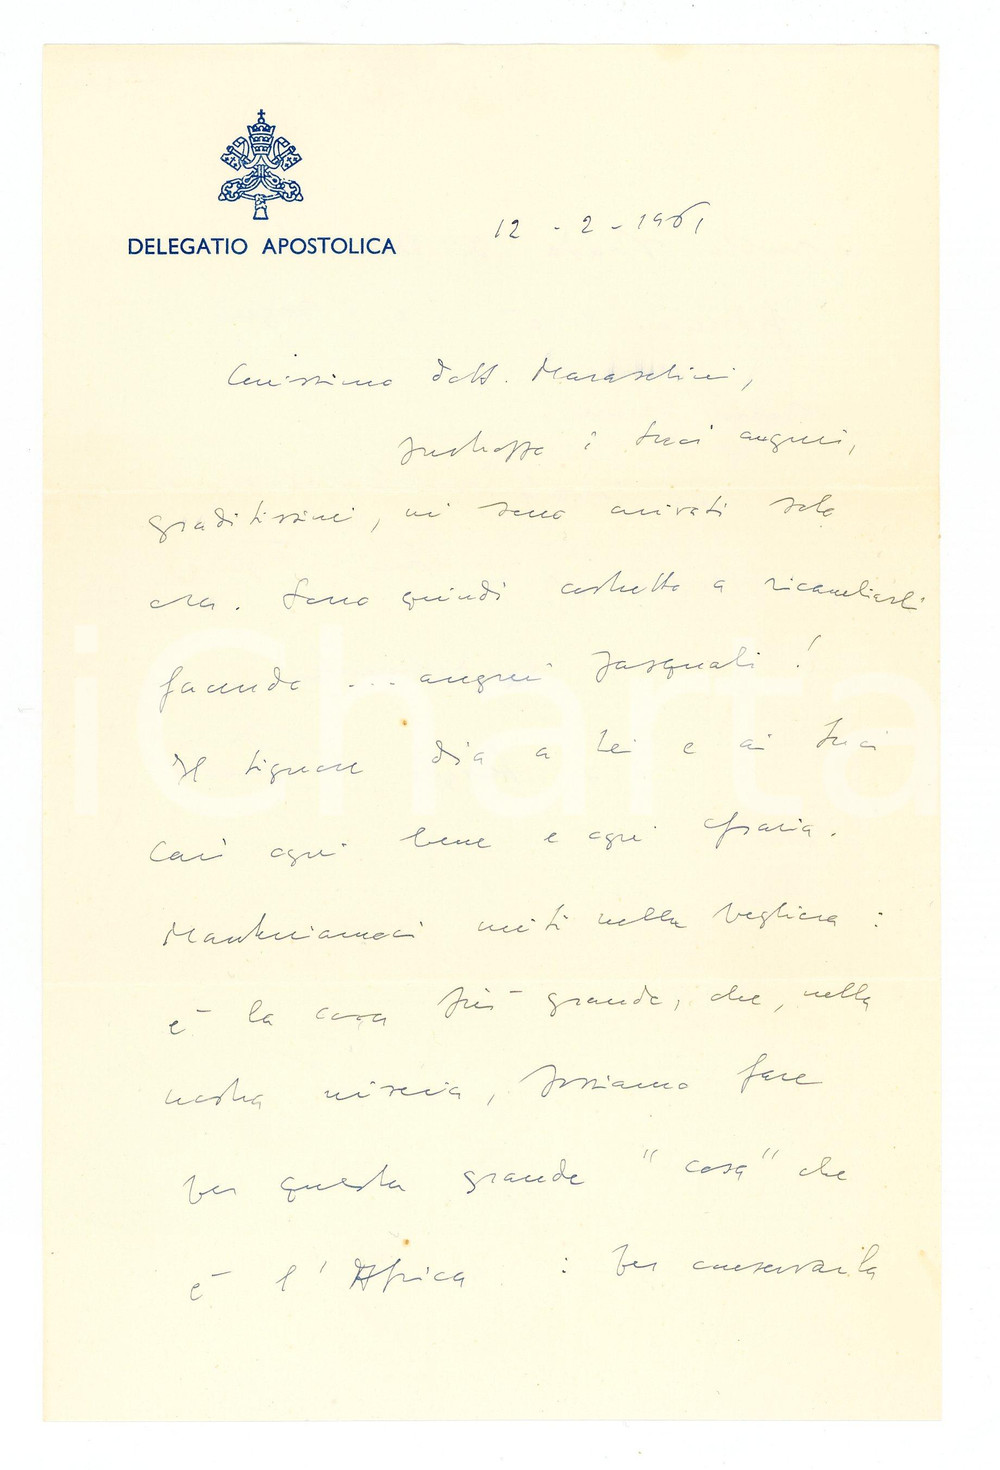 DELEGATIO APOSTOLICA
12 - 2 - 1961
Carissimo dott. Maraschini,
purtroppo i suoi auguri,
graditissimi, mi sono arrivati solo
ora. Sono quindi costretto a ricambiarli
facendo ... auguri pasquali!
Il Signore dia a Lei e ai suoi
cari ogni bene e ogni grazia.
Manteniamoci uniti nella preghiera:
è la cosa più grande, che, nella
nostra miseria, possiamo fare
per questa grande "cosa" che
è l'Africa: per conservarla
iCharta